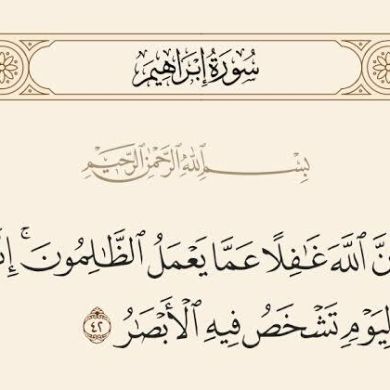 سُورَةُ إِبْرَاهِيمَ
بِسْمِ ٱللَّهِ ٱلرَّحْمَٰنِ ٱلرَّحِيمِ
نَّ ٱللَّهَ غَٰفِلًا عَمَّا يَعْمَلُ ٱلظَّٰلِمُونَ ۚ إِنَّ
لِيَوْمٍ تَشْخَصُ فِيهِ ٱلْأَبْصَٰرُ ٤٢